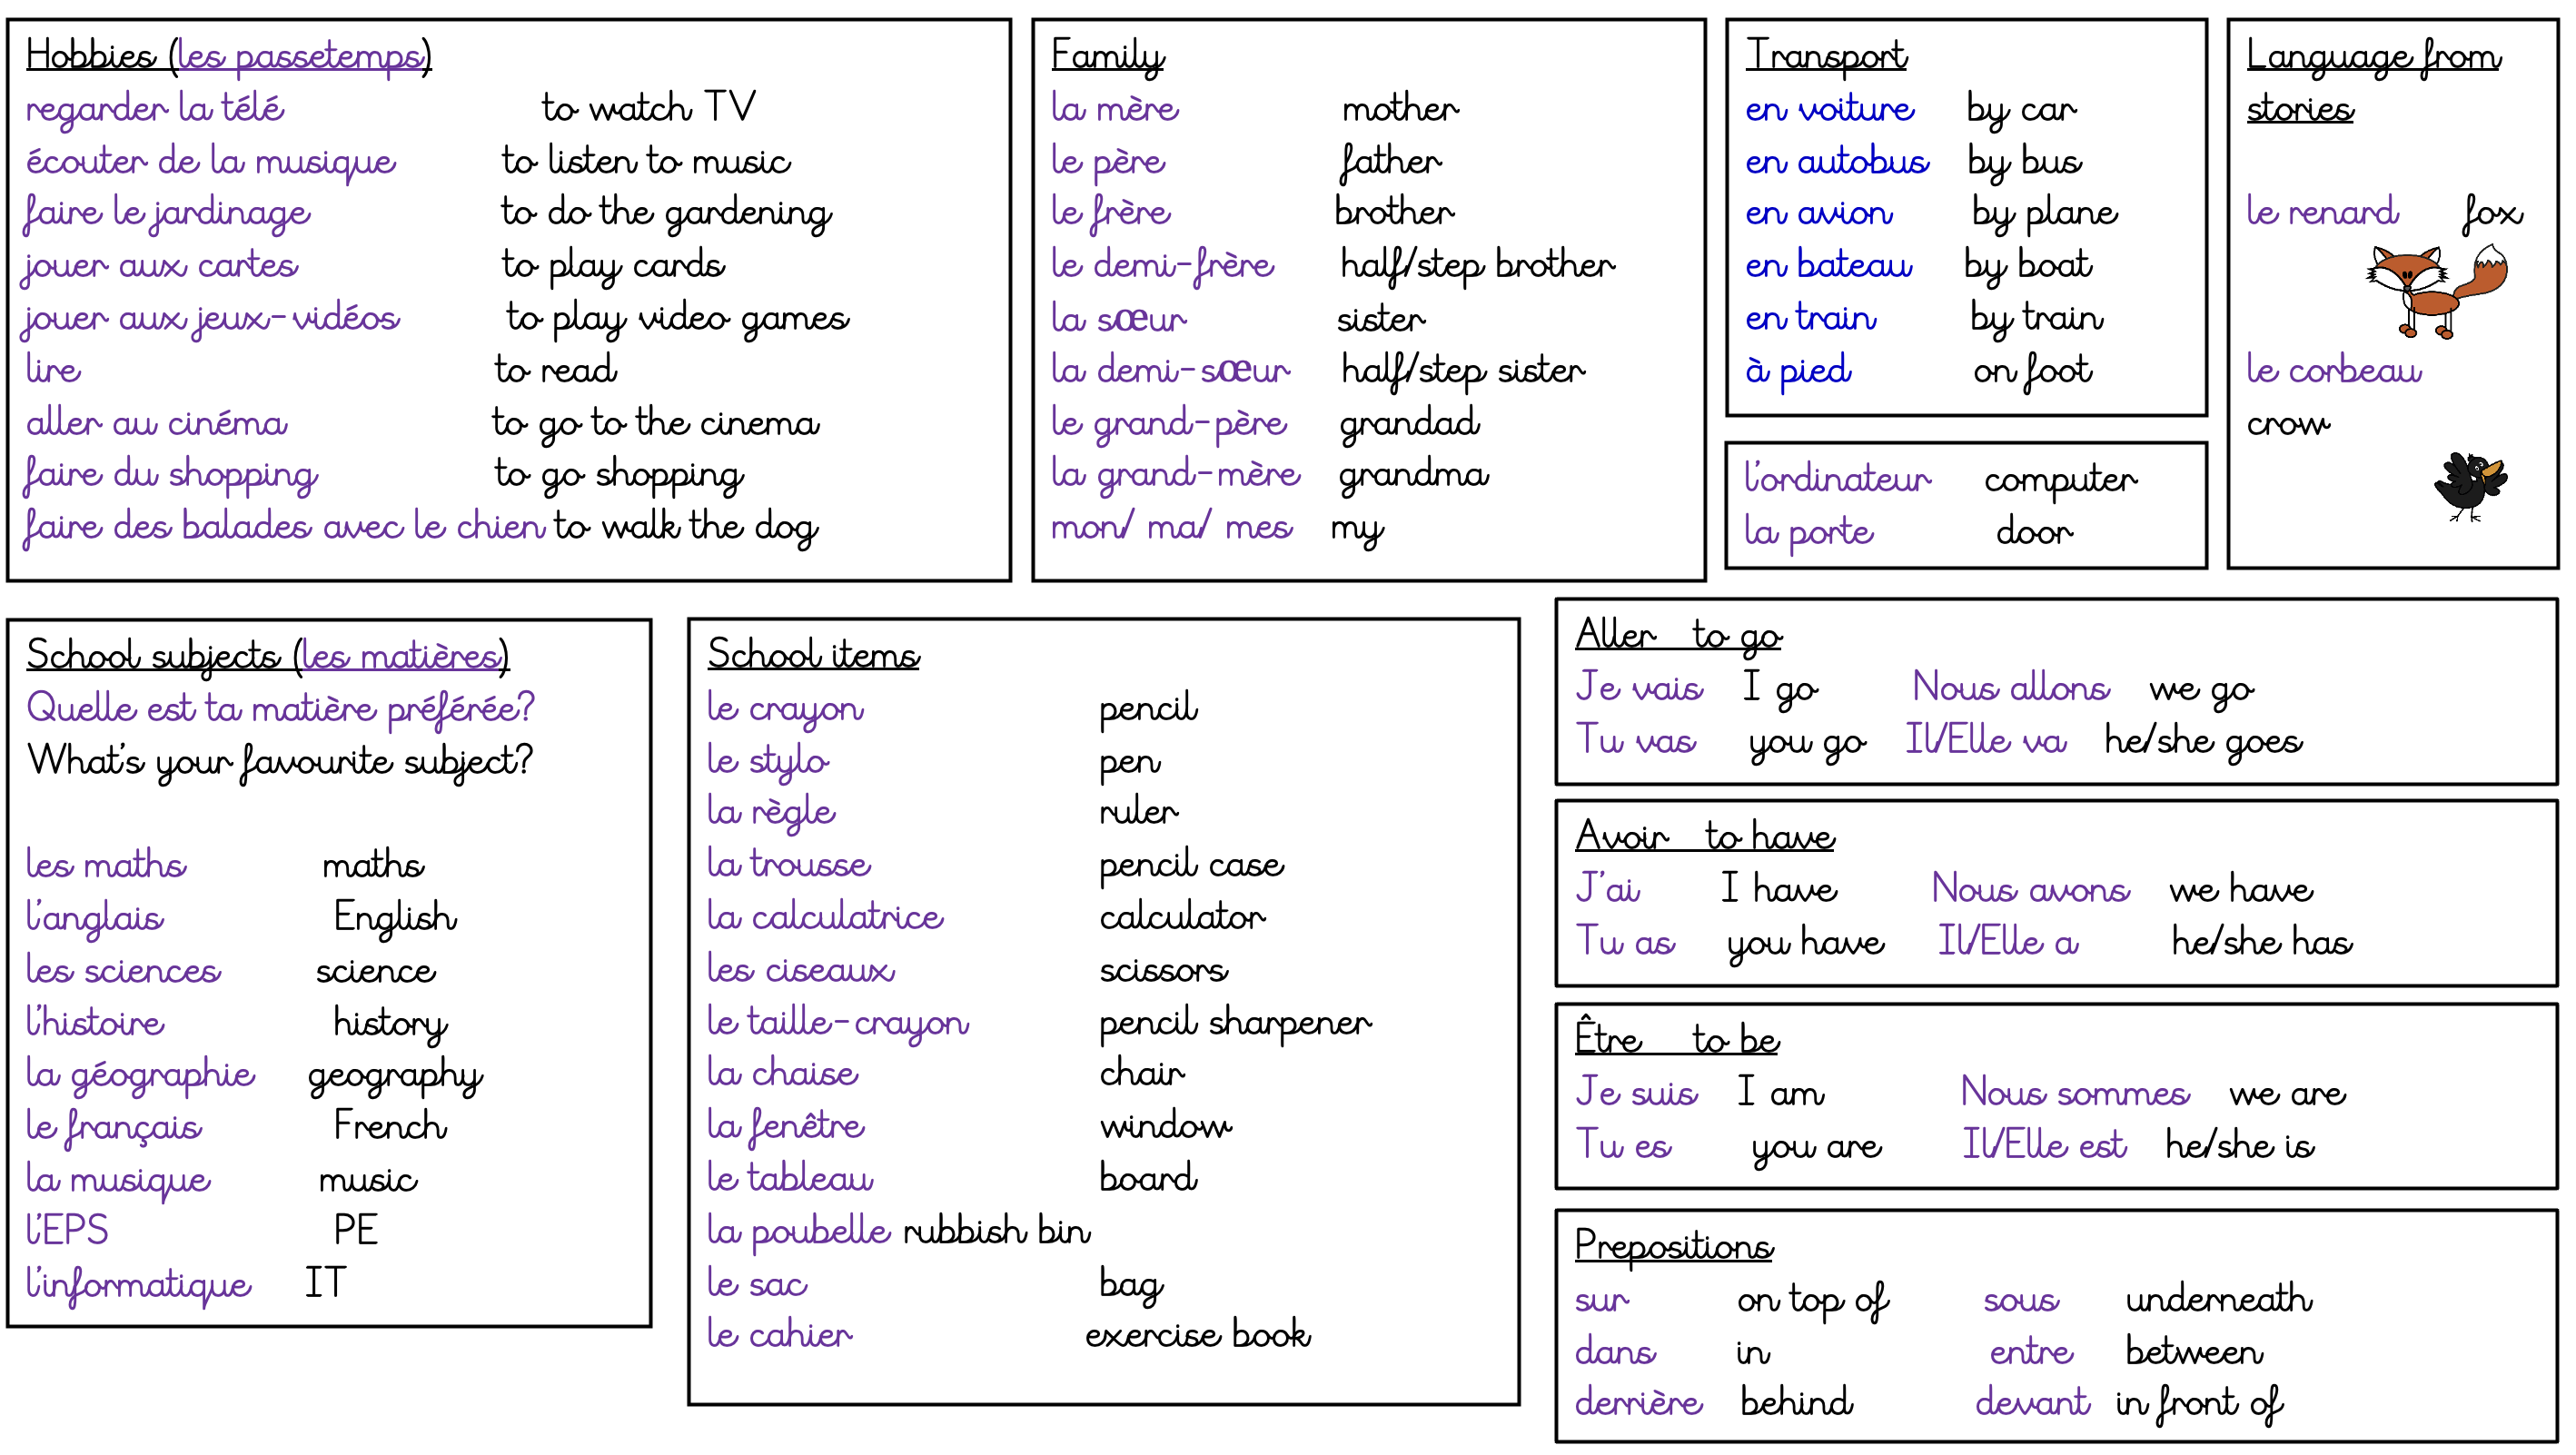 Hobbies (les passetemps)
regarder la télé to watch TV
écouter de la musique to listen to music
faire le jardinage to do the gardening
jouer aux cartes to play cards
jouer aux jeux-vidéos to play video games
lire to read
aller au cinéma to go to the cinema
faire du shopping to go shopping
faire des balades avec le chien to walk the dog
Family
la mère mother
le père father
le frère brother
le demi-frère half/step brother
la sœur sister
la demi-sœur half/step sister
le grand-père grandad
la grand-mère grandma
mon/ ma/ mes my
Transport
en voiture by car
en autobus by bus
en avion by plane
en bateau by boat
en train by train
à pied on foot
l'ordinateur computer
la porte door
Language from
stories
le renard fox
le corbeau
crow
School subjects (les matières)
Quelle est ta matière préférée?
What's your favourite subject?
les maths maths
l'anglais English
les sciences science
l'histoire history
la géographie geography
le français French
la musique music
l'EPS PE
l'informatique IT
School items
le crayon pencil
le stylo pen
la règle ruler
la trousse pencil case
la calculatrice calculator
les ciseaux scissors
le taille-crayon pencil sharpener
la chaise chair
la fenêtre window
le tableau board
la poubelle rubbish bin
le sac bag
le cahier exercise book
Aller to go
Je vais I go Nous allons we go
Tu vas you go Il/Elle va he/she goes
Avoir to have
J'ai I have Nous avons we have
Tu as you have Il/Elle a he/she has
Être to be
Je suis I am Nous sommes we are
Tu es you are Il/Elle est he/she is
Prepositions
sur on top of sous underneath
dans in entre between
derrière behind devant in front of